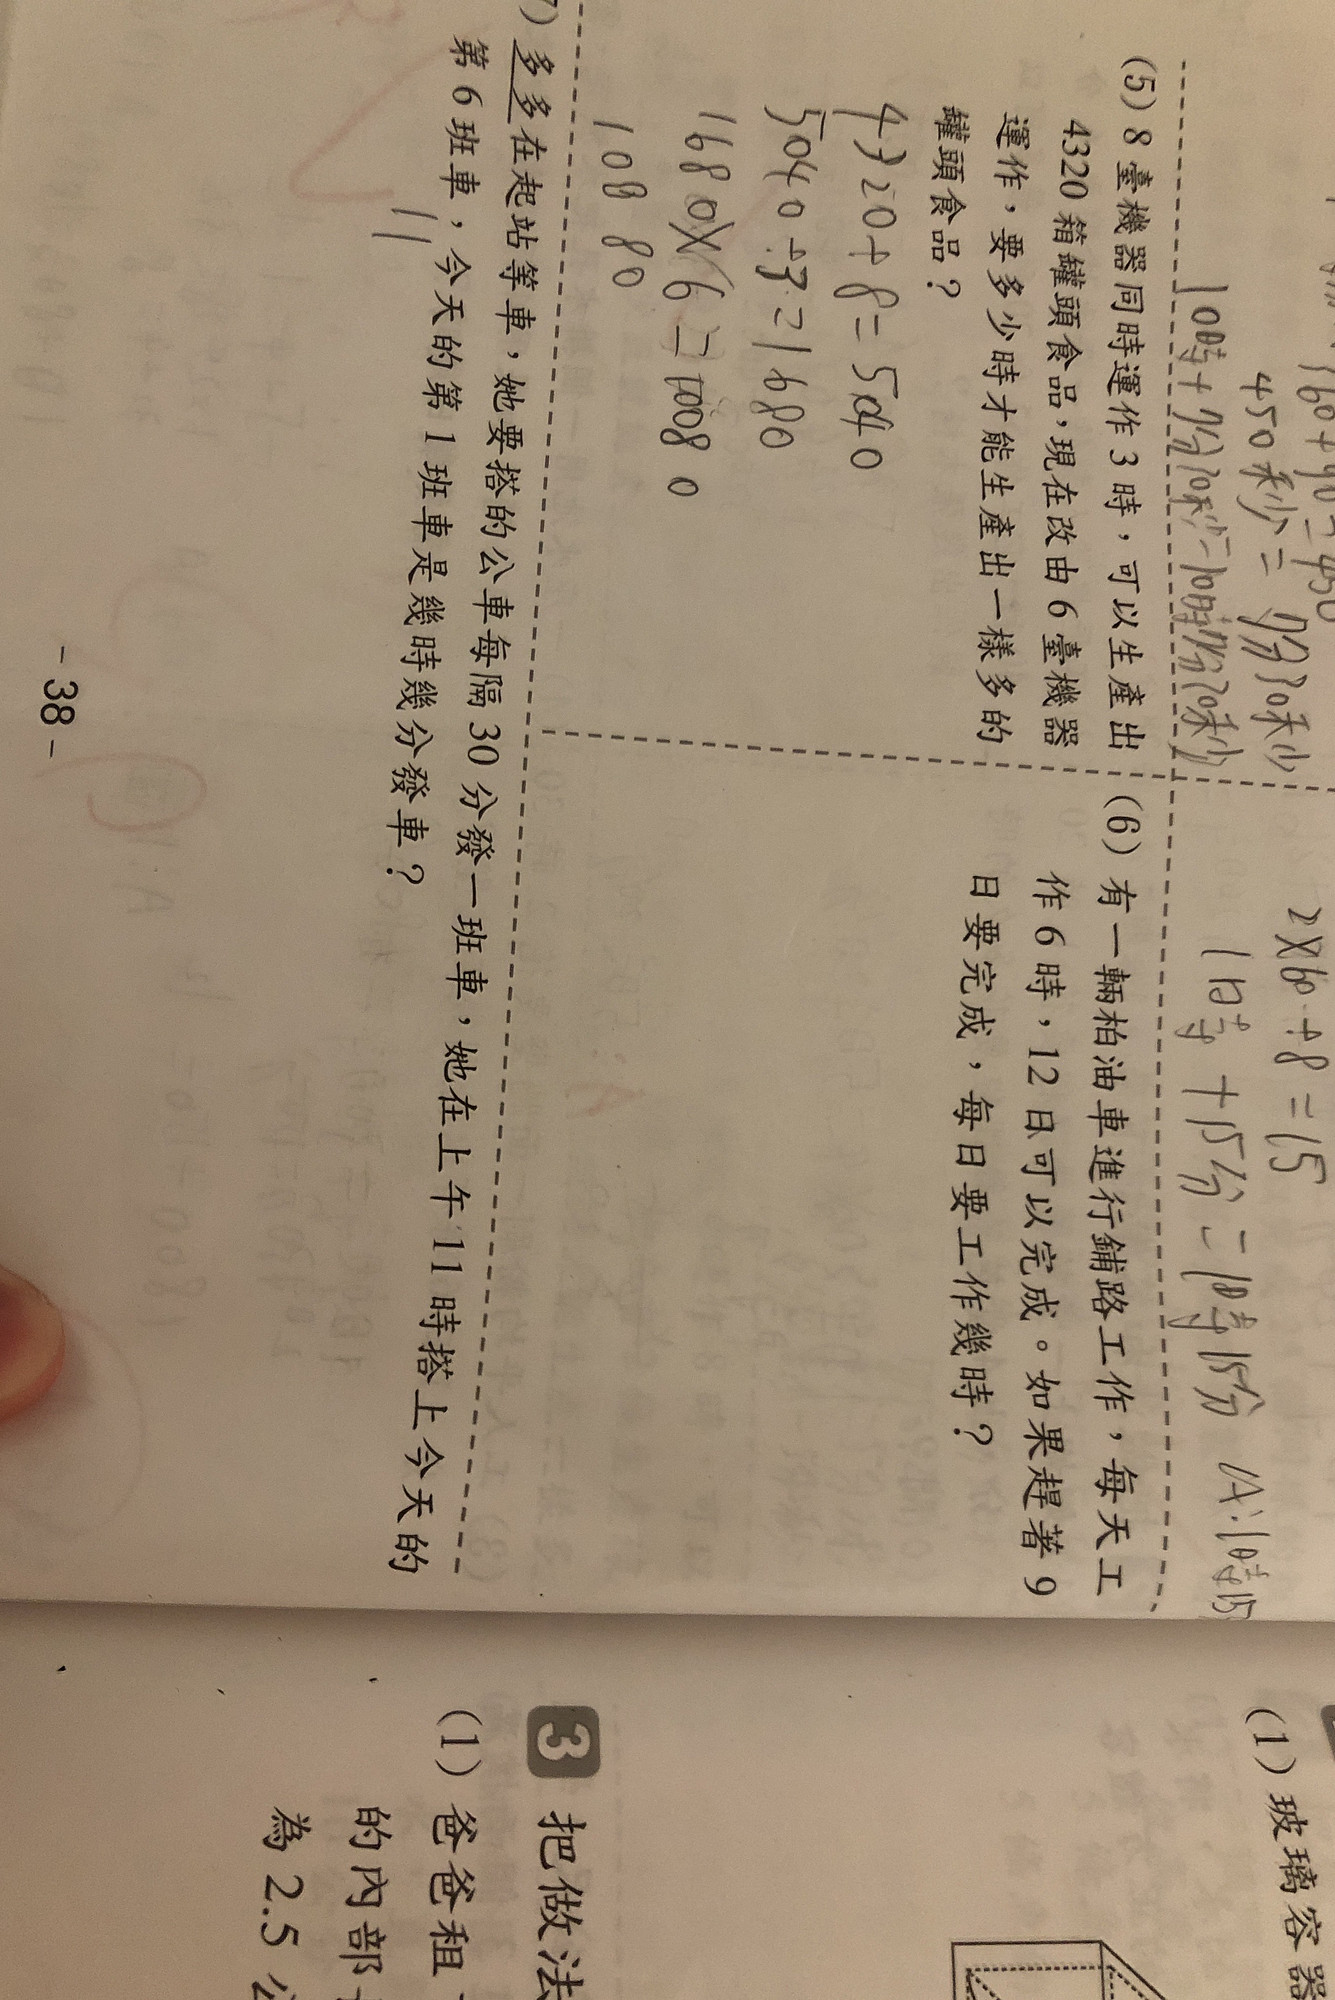 450秒=7分30秒
2×60÷8=15
1時+15分=1時15分 A:1時15
(5) 8臺機器同時運作3時，可以生產出
4320箱罐頭食品，現在改由6臺機器
運作，要多少時才能生產出一樣多的
罐頭食品？
4320÷8=5040
5040÷3=1680
1680×6=10080
10880
(6) 有一輛柏油車進行鋪路工作，每天工
作6時，12日可以完成。如果趕著9
日要完成，每日要工作幾時？
7) 多多在起站等車，她要搭的公車每隔30分發一班車，她在上午11時搭上今天的
第6班車，今天的第1班車是幾時幾分發車？
11
-38-
(1) 玻璃容器
3 把做法
(1) 爸爸租
的內部
為2.5公